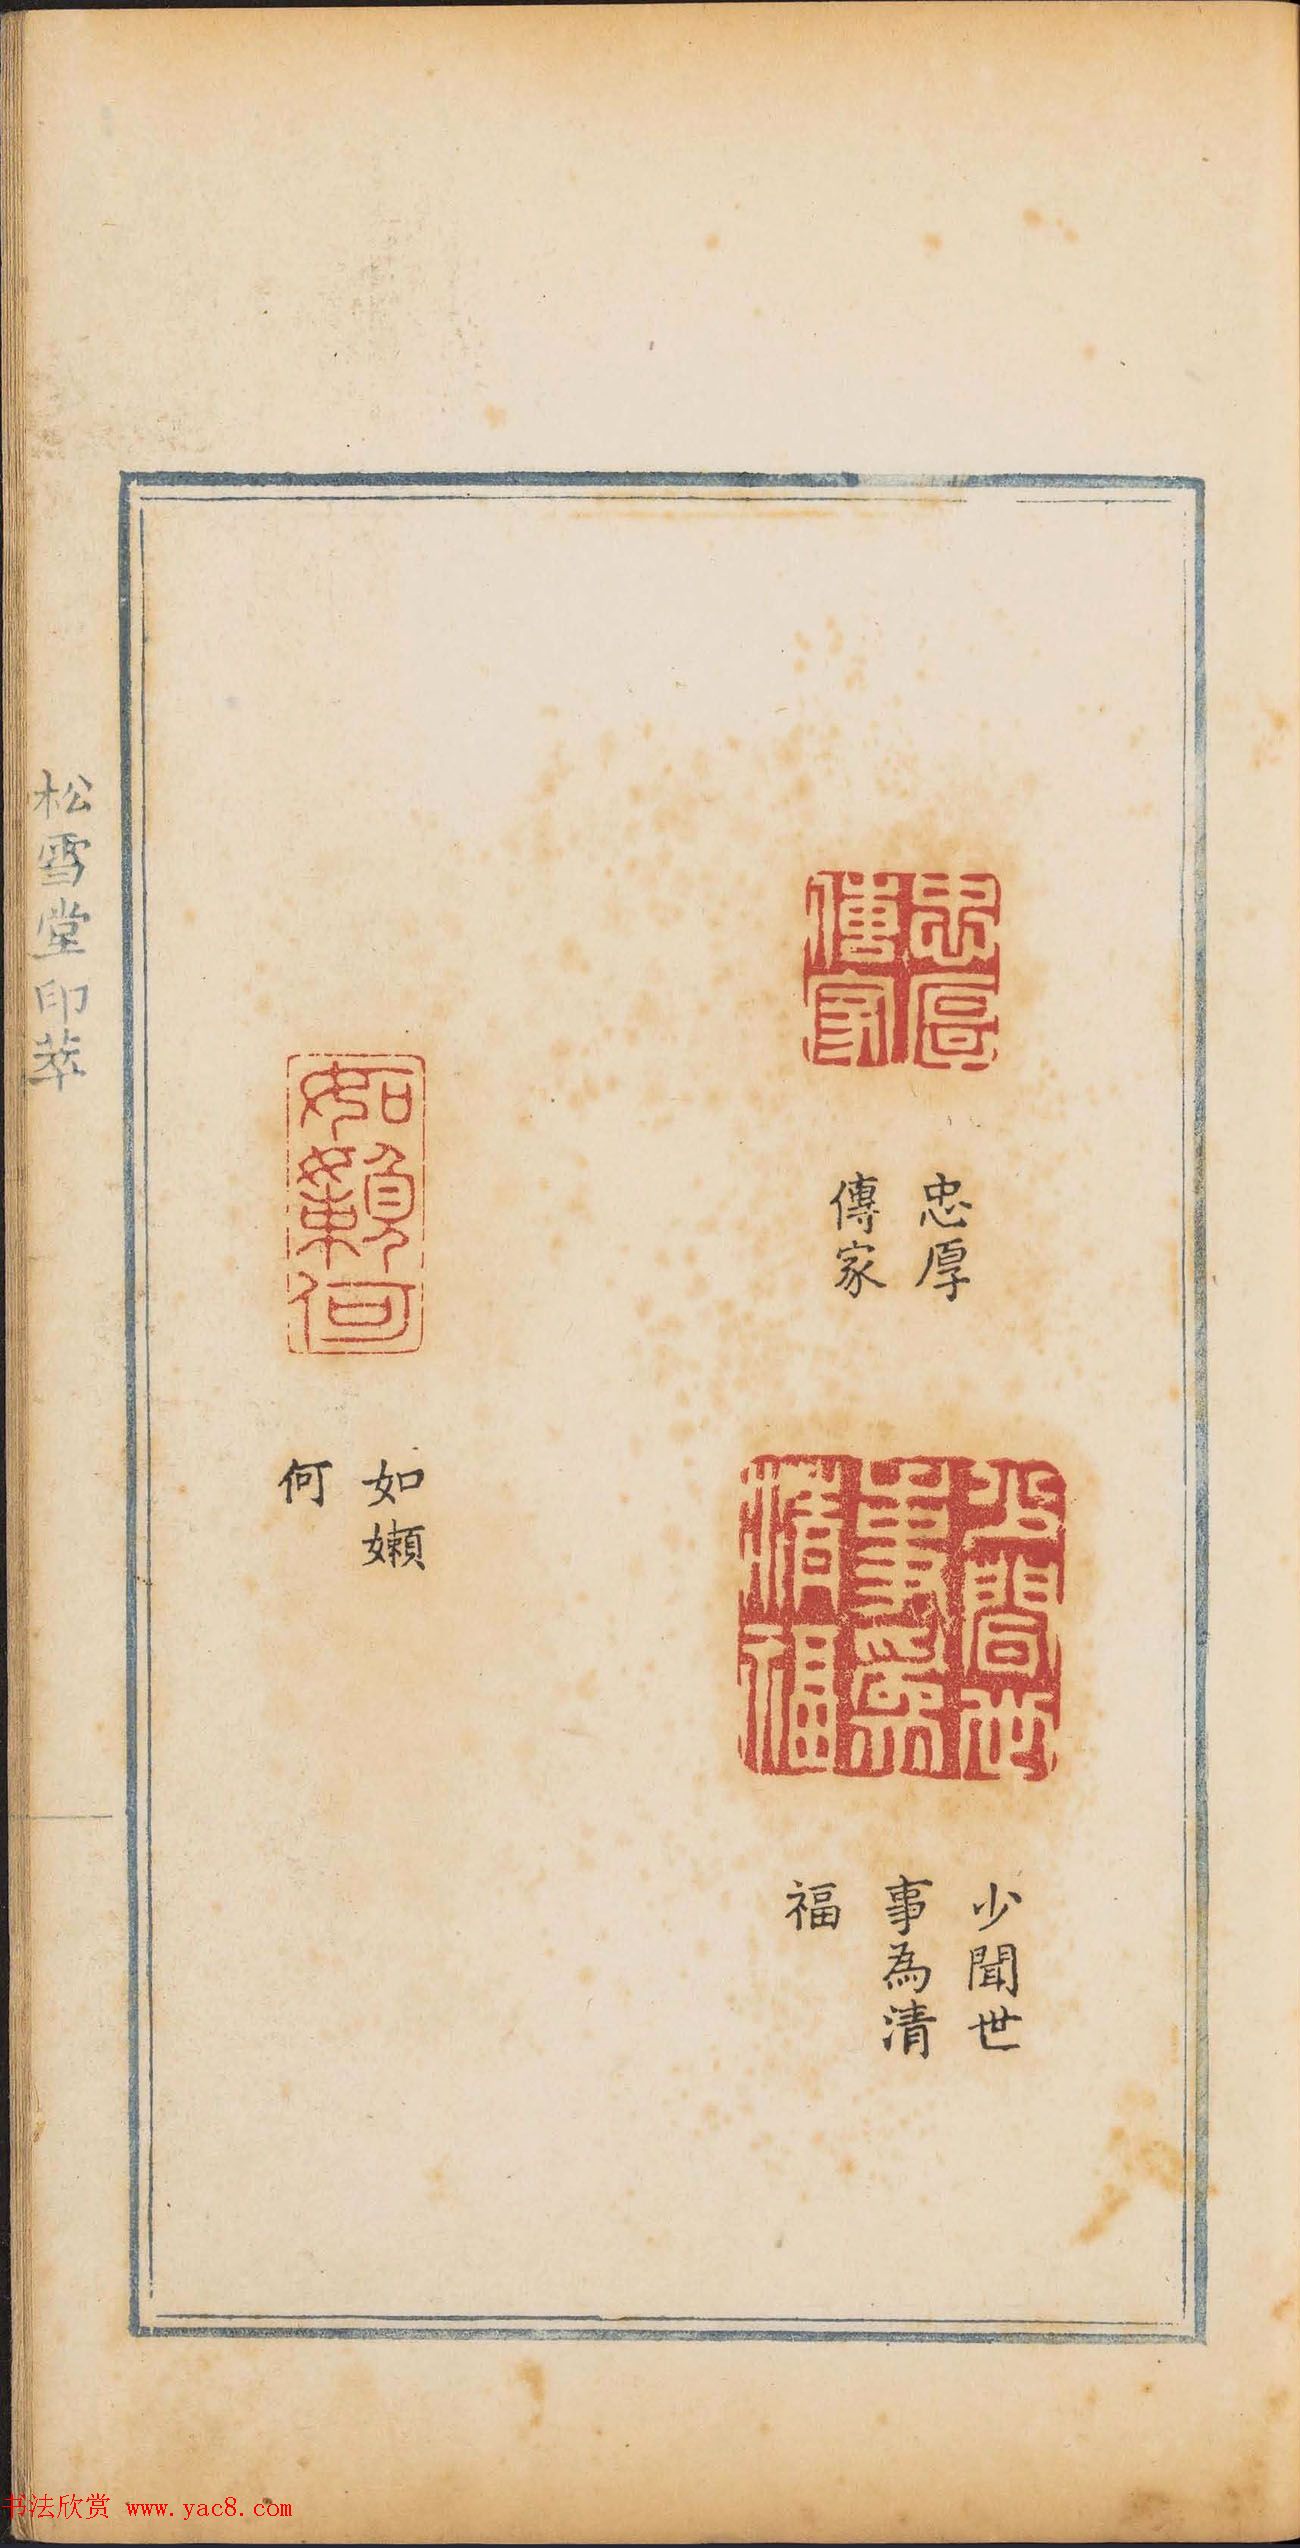 忠厚
傳家
忠厚
傳家
少聞世
事為
清福
少聞世
事為清
福
如嬾何
如嬾
何
松雪堂印萃
书法欣赏 www.yac8.com